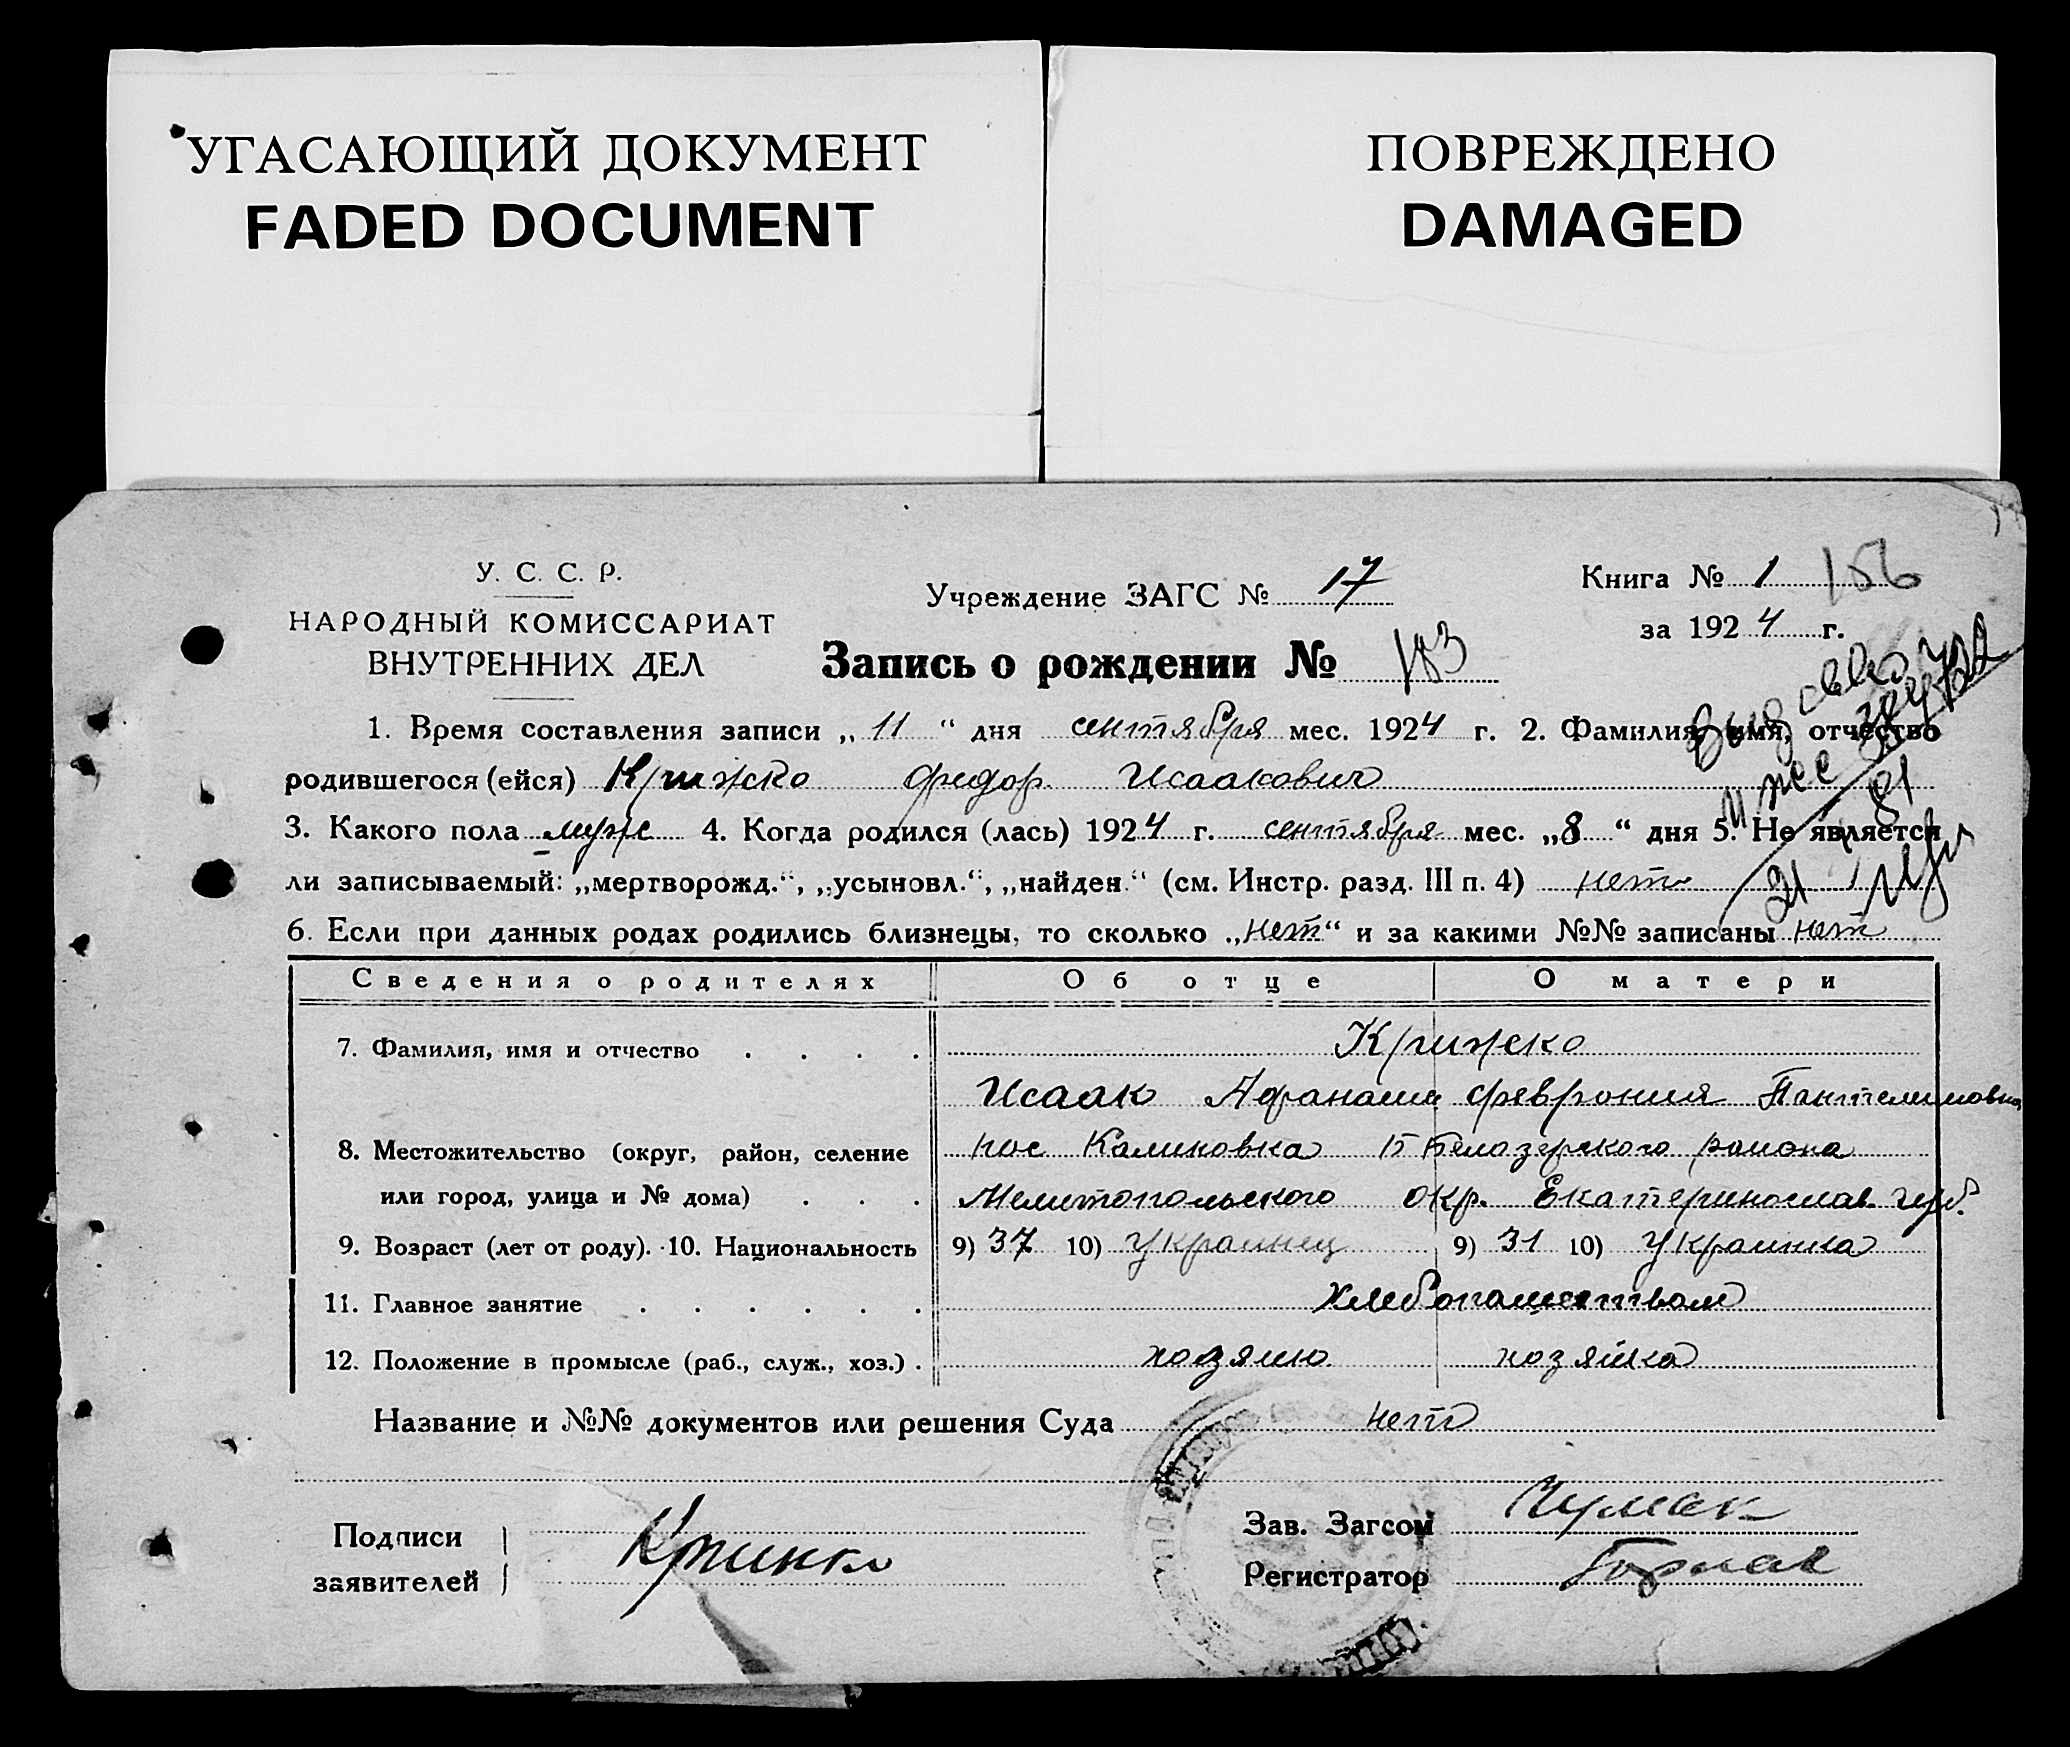 УГАСАЮЩИЙ ДОКУМЕНТ
FADED DOCUMENT
ПОВРЕЖДЕНО
DAMAGED
У. С. С. Р.
НАРОДНЫЙ КОМИССАРИАТ
ВНУТРЕННИХ ДЕЛ
Учреждение ЗАГС № 17
Книга № 1 156
за 1924 г.
Запись о рождении № 183
1. Время составления записи „11“ дня сентября мес. 1924 г. 2. Фамилия, имя, отчество
родившегося (ейся) Крижко Федор Исаакович
3. Какого пола муж 4. Когда родился (лась) 1924 г. сентября мес. „8“ дня 5. Не является
ли записываемый: „мертворожд.“, „усыновл.“, „найден.“ (см. Инстр. разд. III п. 4) нет
6. Если при данных родах родились близнецы, то сколько „нет“ и за какими №№ записаны нет
Сведения о родителях Об отце О матери
7. Фамилия, имя и отчество . . . . Крижко
Исаак Афанасий Феврония Пантелимовна
8. Местожительство (округ, район, селение пос Калиновка Белозерского района
или город, улица и № дома) . . . Мелитопольского окр. Екатеринослав. губ.
9. Возраст (лет от роду). 10. Национальность 9) 37 10) Украинец 9) 31 10) Украинка
11. Главное занятие . . . . . . Хлебопашеством
12. Положение в промысле (раб., служ., хоз.) . хозяин хозяйка
Название и №№ документов или решения Суда нет
Подписи
заявителей
Зав. Загсом Чумак
Регистратор